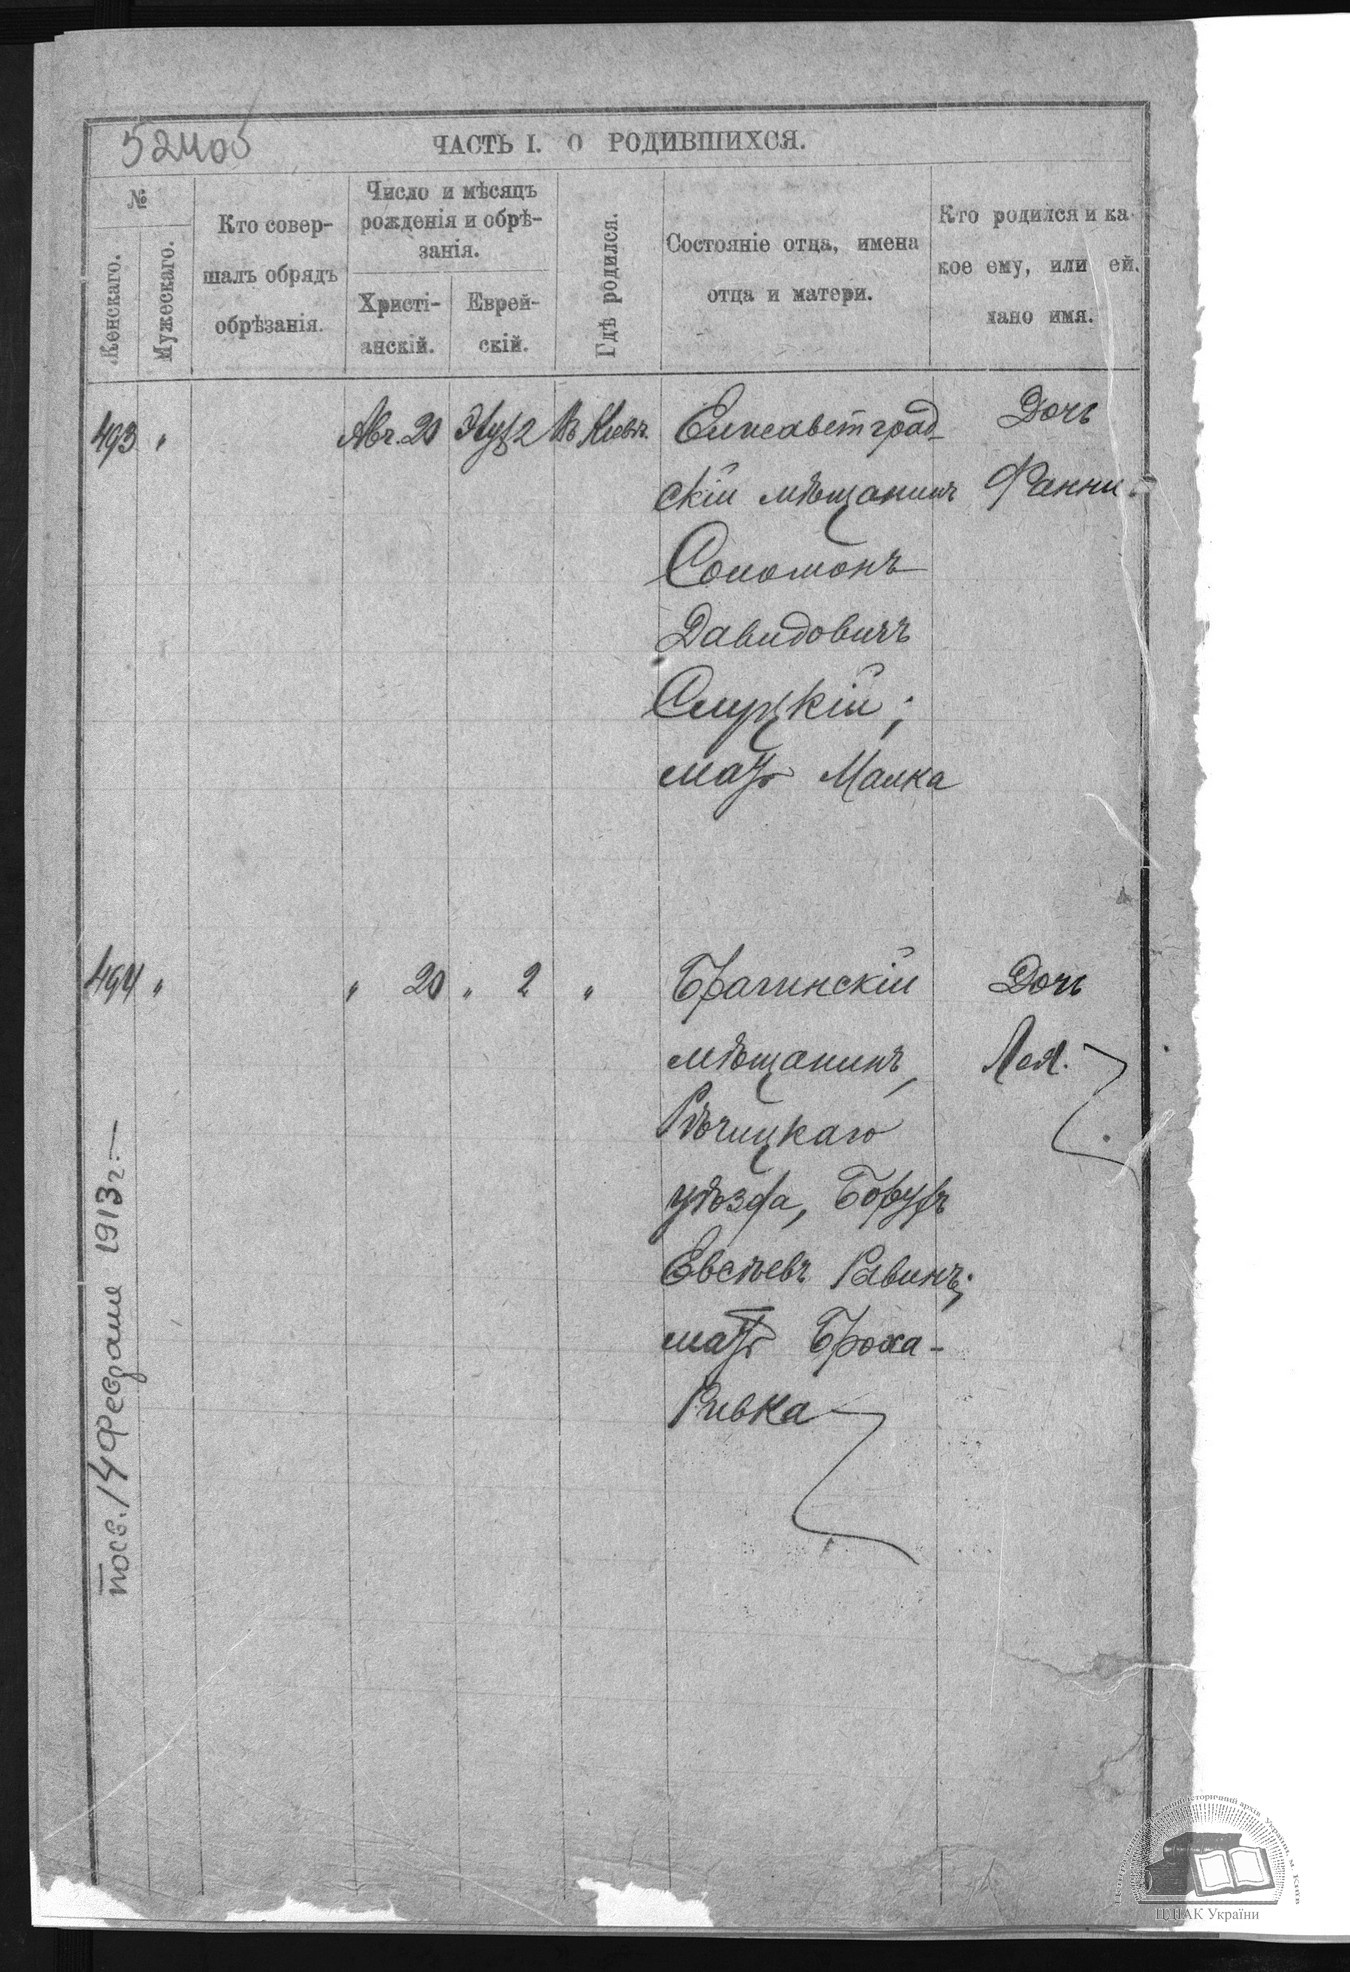 52405
ЧАСТЬ I. О РОДИВШИХСЯ.
№
Женскаго.
Мужескаго.
Кто совер-
шалъ обрядъ
обрѣзанія.
Число и мѣсяцъ
рожденія и обрѣ-
занія.
Христі-
анскій.
Еврей-
скій.
Гдѣ родился.
Состояніе отца, имена
отца и матери.
Кто родился и ка
кое ему, или ей.
дано имя.
493 " Авг. 20 Элул 2 Въ Кіевѣ. Елисаветград- Дочь
скій мѣщанинъ Фанни.
Соломонъ
Давидовичъ
Слуцкій;
мать Малка
494 " " 20 " 2 " Брагинскій Дочь
мѣщанинъ, Лея.
Рѣчицкаго
уѣзда, Борухъ
Евсѣевъ Равинъ;
мать Броха-
Ривка
посв. 14 Февраля 1913 г.—
ЦДІАК України